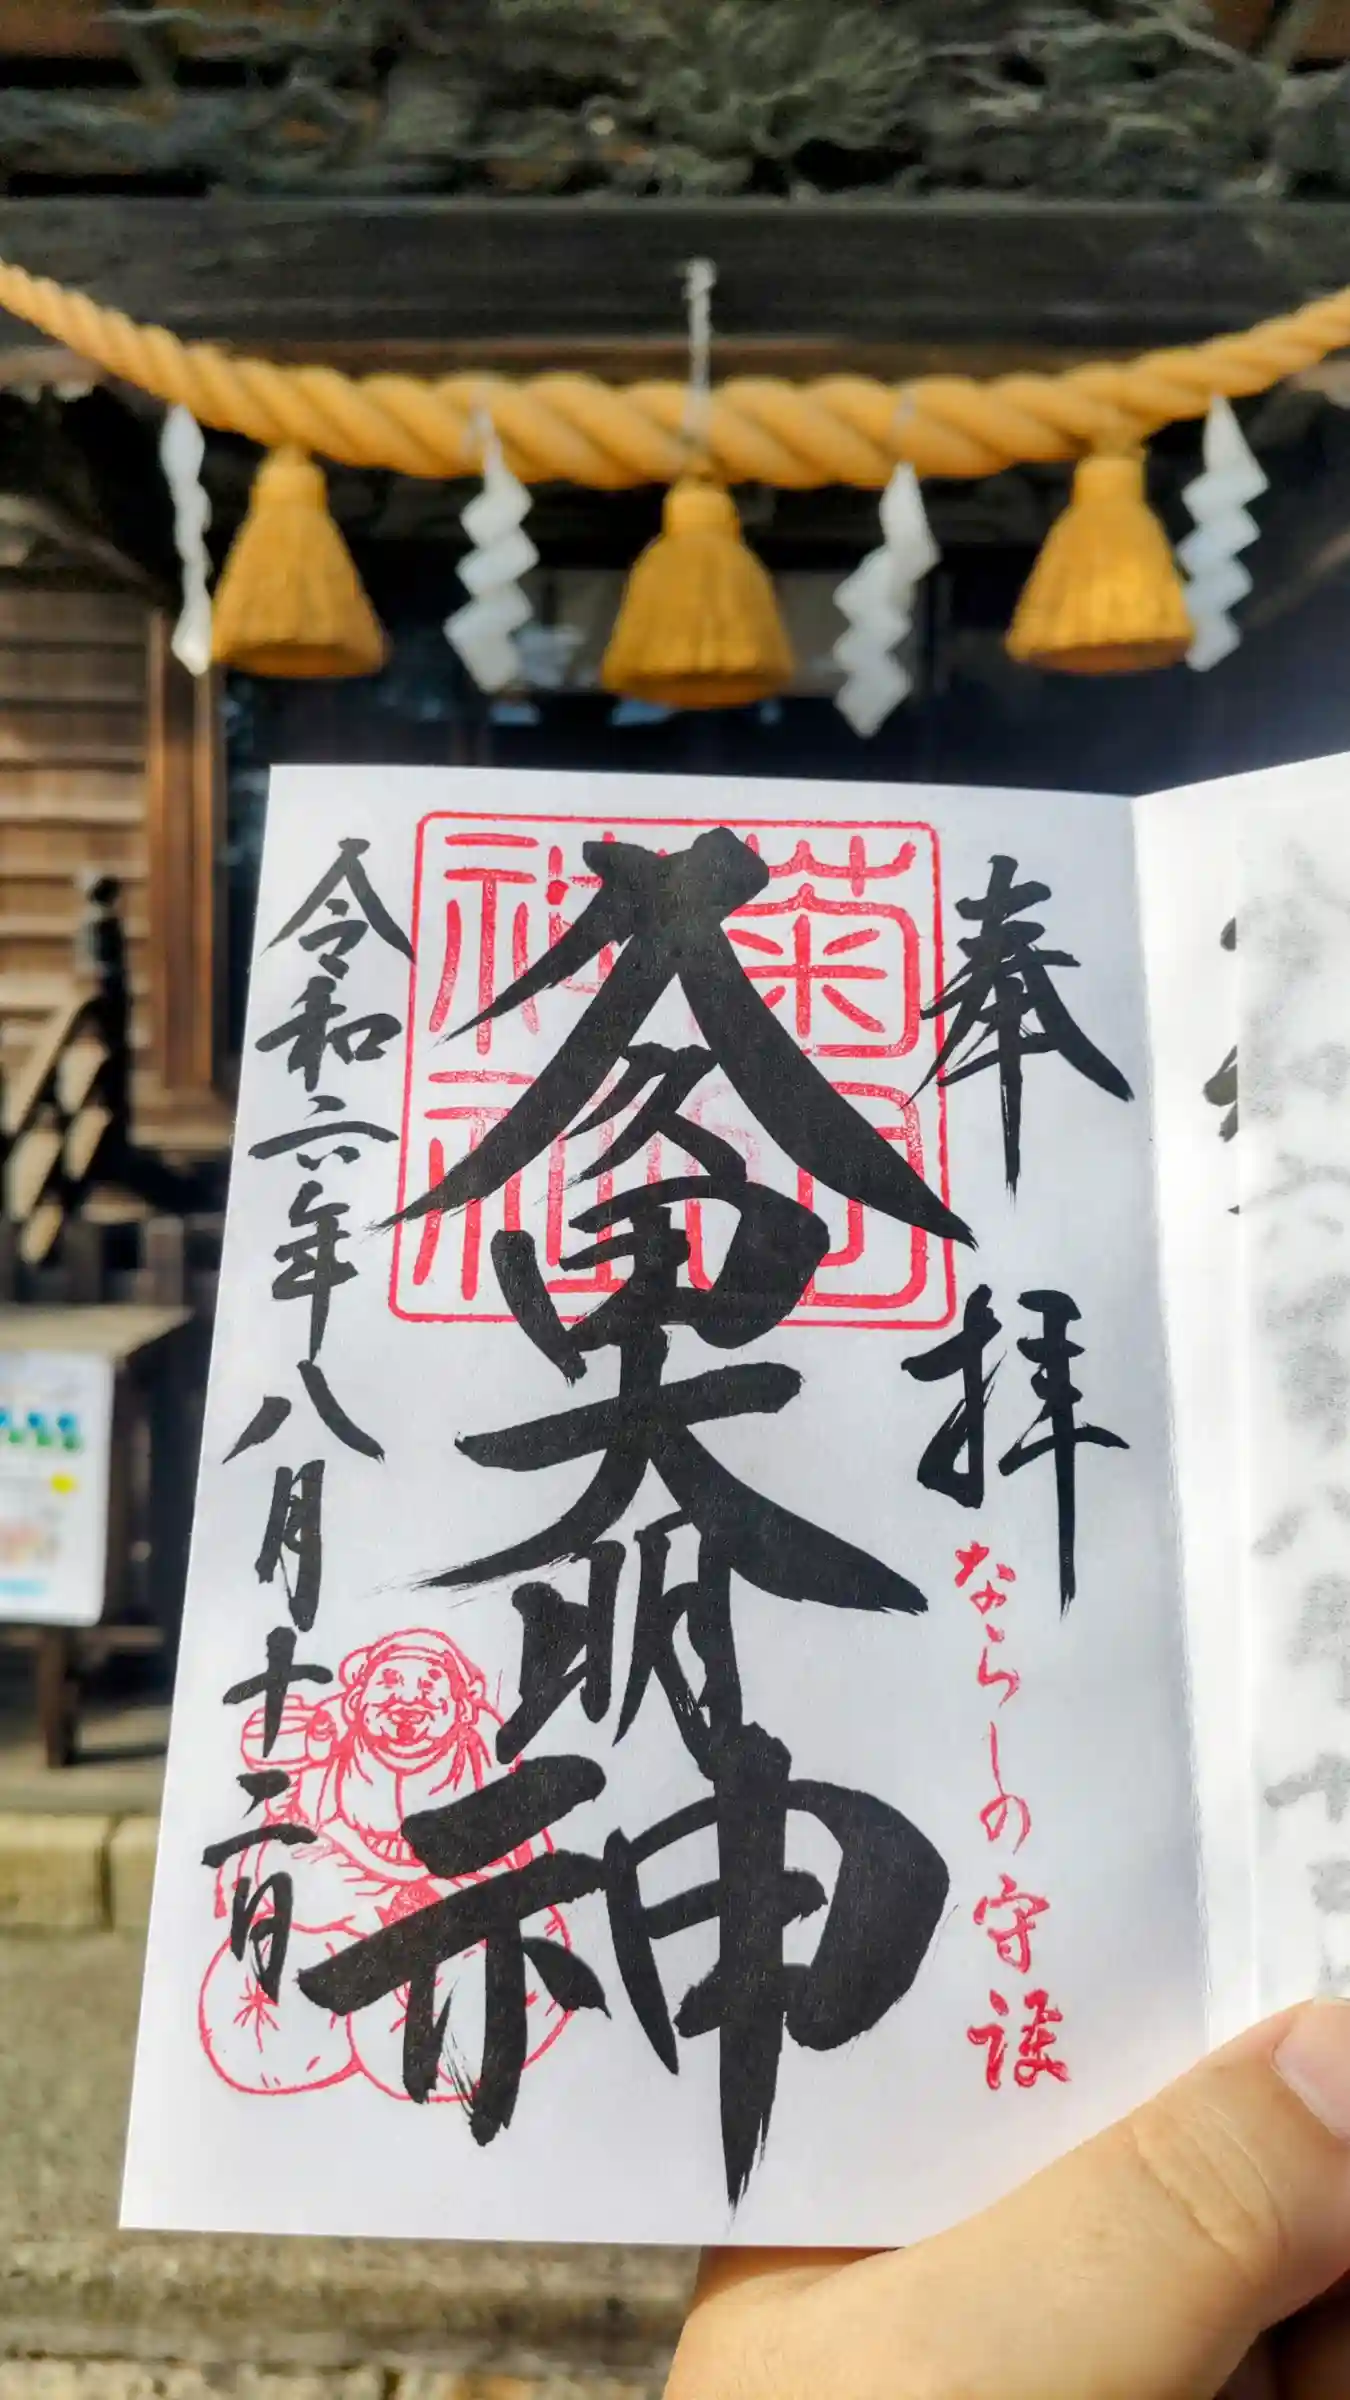 奉拝
ならしの守護
菊田神社
久久田大明神
令和六年八月十二日